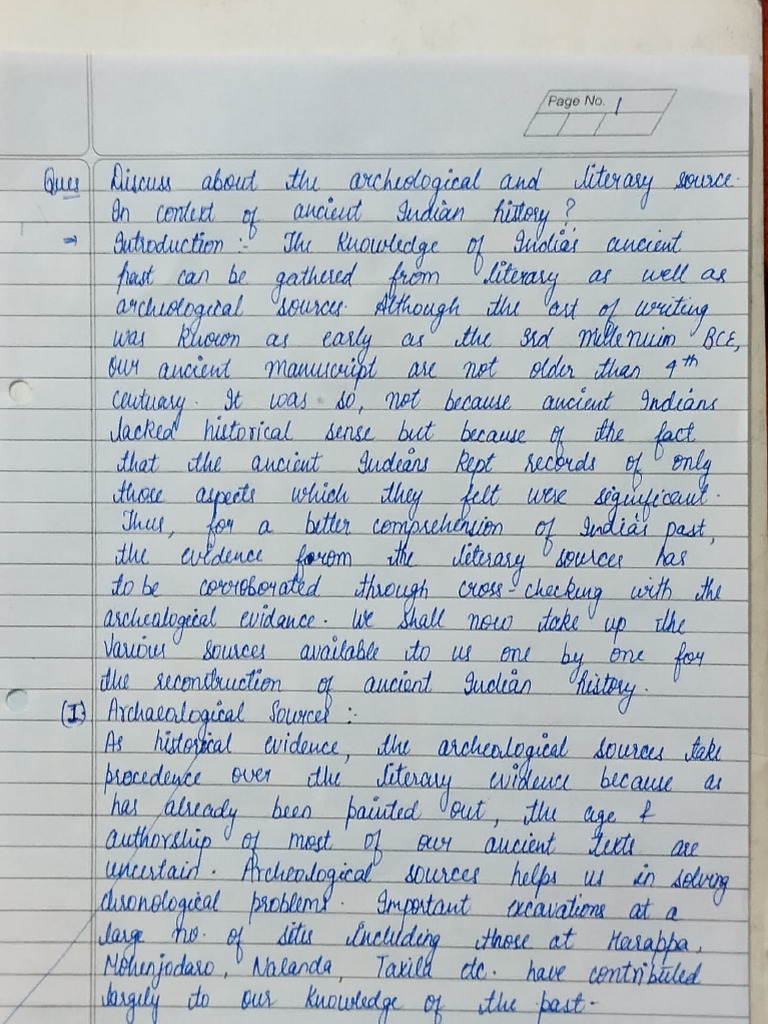 Page No. 1
Ques Discuss about the archeological and literary source.
In context of ancient Indian history?
⇒ Introduction :- The Knowledge of India's ancient
past can be gathered from literary as well as
archeological sources. Although the art of writing
was known as early as the 3rd millenium BCE,
our ancient manuscript are not older than 4th
centuary. It was so, not because ancient Indians
lacked historical sense but because of the fact
that the ancient Indians kept records of only
those aspects which they felt were significant.
Thus, for a better comprehension of India's past,
the evidence from the literary sources has
to be corroborated through cross-checking with the
archeological evidance. We shall now take up the
various sources available to us one by one for
the reconstruction of ancient Indian history.
(I) Archaeological Sources :-
As historical evidence, the archeological sources take
procedence over the literary evidence because as
has already been painted out, the age &
authorship of most of our ancient texts are
uncertain. Archeological sources helps us in solving
chronological problems. Important excavations at a
large no. of sites including those at Harappa,
Mohenjodaro, Nalanda, Taxila etc. have contributed
largely to our knowledge of the past.